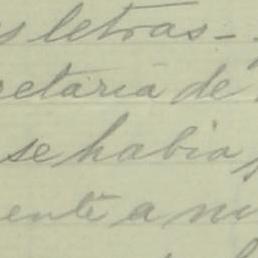 s letras-
retaria de
se habia
ente a